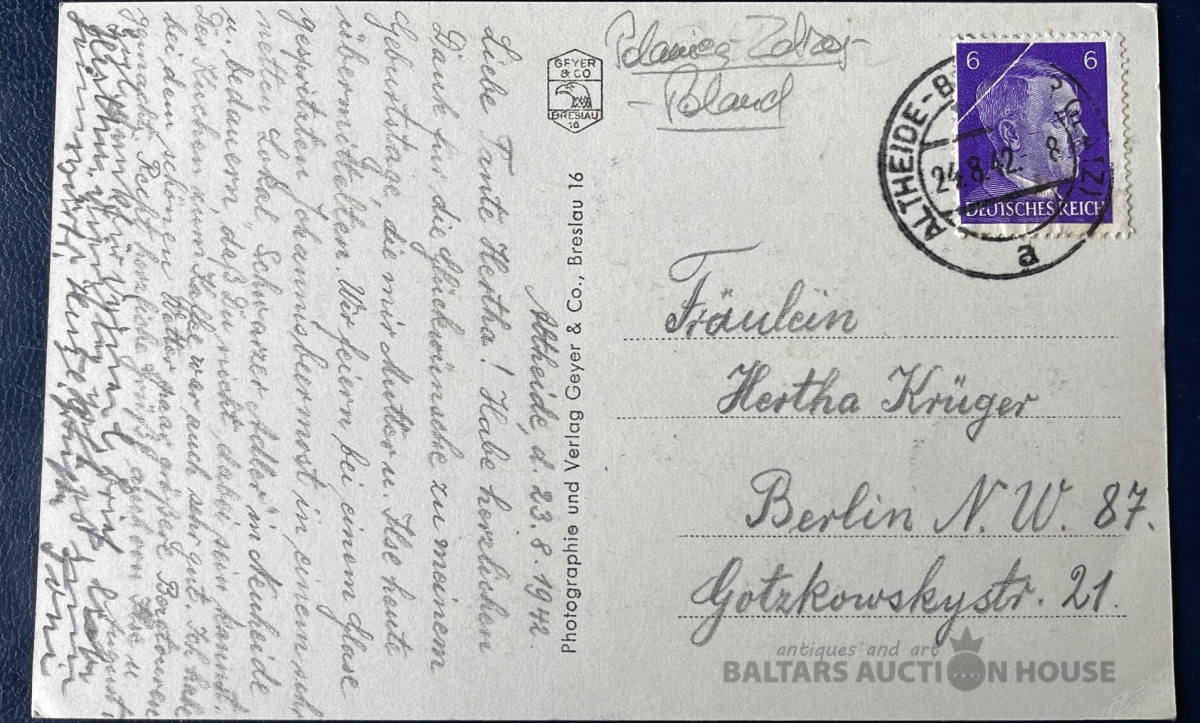 Altheide, d. 23.8.1942.
Liebe Tante Hertha! Habe herzlichen
Dank für die Glückwünsche zu meinem
Geburtstage, die mir Mutter u. Ilse heute
übermittelten. Wir feiern bei einem Glase
gespritzten Johannisbeermost in einem sehr
netten Lokal, "Schwarzer Adler" in Neuheide
u. bedauern, daß Du nicht dabei sein kannst.
Der Kuchen zum Kaffee war auch sehr gut. Ich habe
bei dem schönen Wetter paar größere Bootouren
gemacht. Recht herzliche Grüße auch von Ilse u.
GEYER
& CO
BRESLAU
16
Photographie und Verlag Geyer & Co., Breslau 16
Polanica-Zdroj-
- Poland
6 6
DEUTSCHES REICH
ALTHEIDE-B
24.8.42.-8
(2)
a
Fräulein
Hertha Krüger
Berlin N.W. 87.
Gotzkowskystr. 21.
antiques and art
BALTARS AUCTION HOUSE